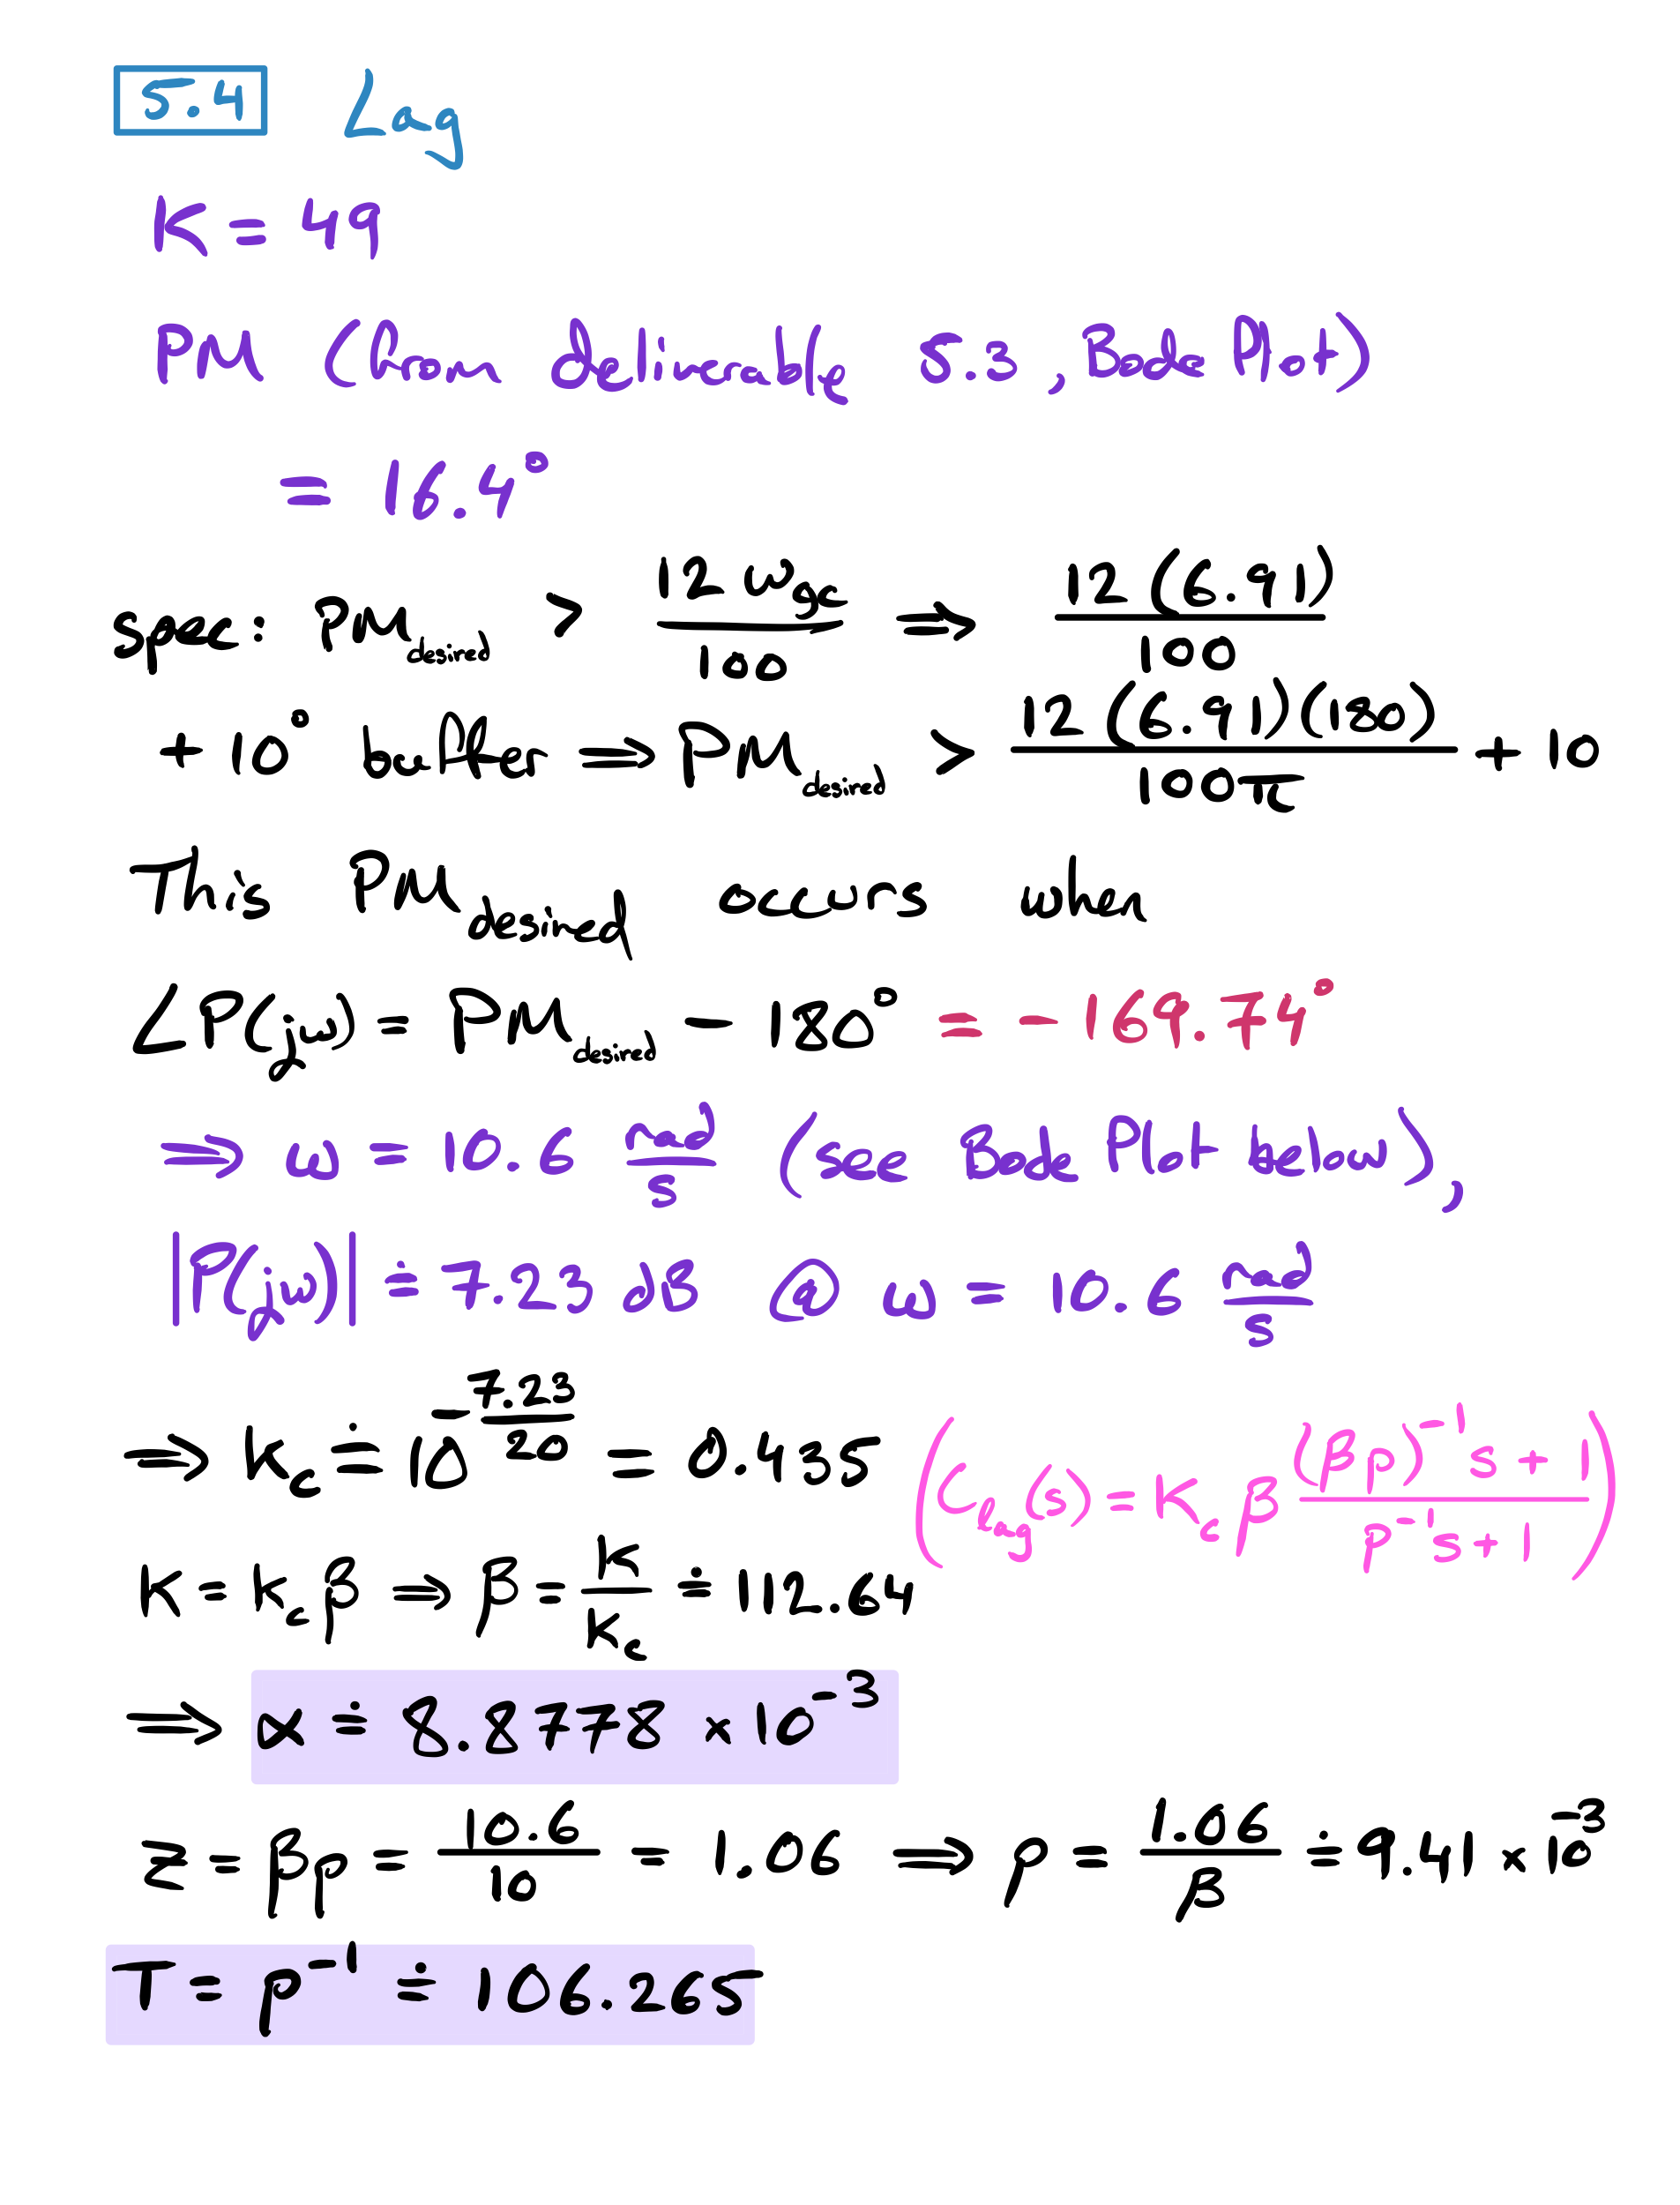 5.4 Lag
K = 49
PM (from deliverable 5.3, Bode Plot)
= 16.4°
spec: PM_desired > 12 ω_gc / 100 ⇒ 12 (6.91) / 100
+ 10° buffer ⇒ PM_desired > 12 (6.91)(180) / 100π + 10
This PM_desired occurs when
∠P(jω) = PM_desired − 180° = − 169.74°
⇒ ω = 10.6 rad/s (see Bode Plot below),
|P(jω)| ≐ 7.23 dB @ ω = 10.6 rad/s
⇒ K_c ≐ 10^(−7.23/20) = 0.435 (C_lag(s) = K_c β ((βp)^−1 s + 1) / (p^−1 s + 1))
K = K_c β ⇒ β = K/K_c ≐ 112.64
⇒ α ≐ 8.8778 × 10^−3
z = βp = 10.6/10 = 1.06 ⇒ p = 1.06/β ≐ 9.41 × 10^−3
T = p^−1 ≐ 106.265